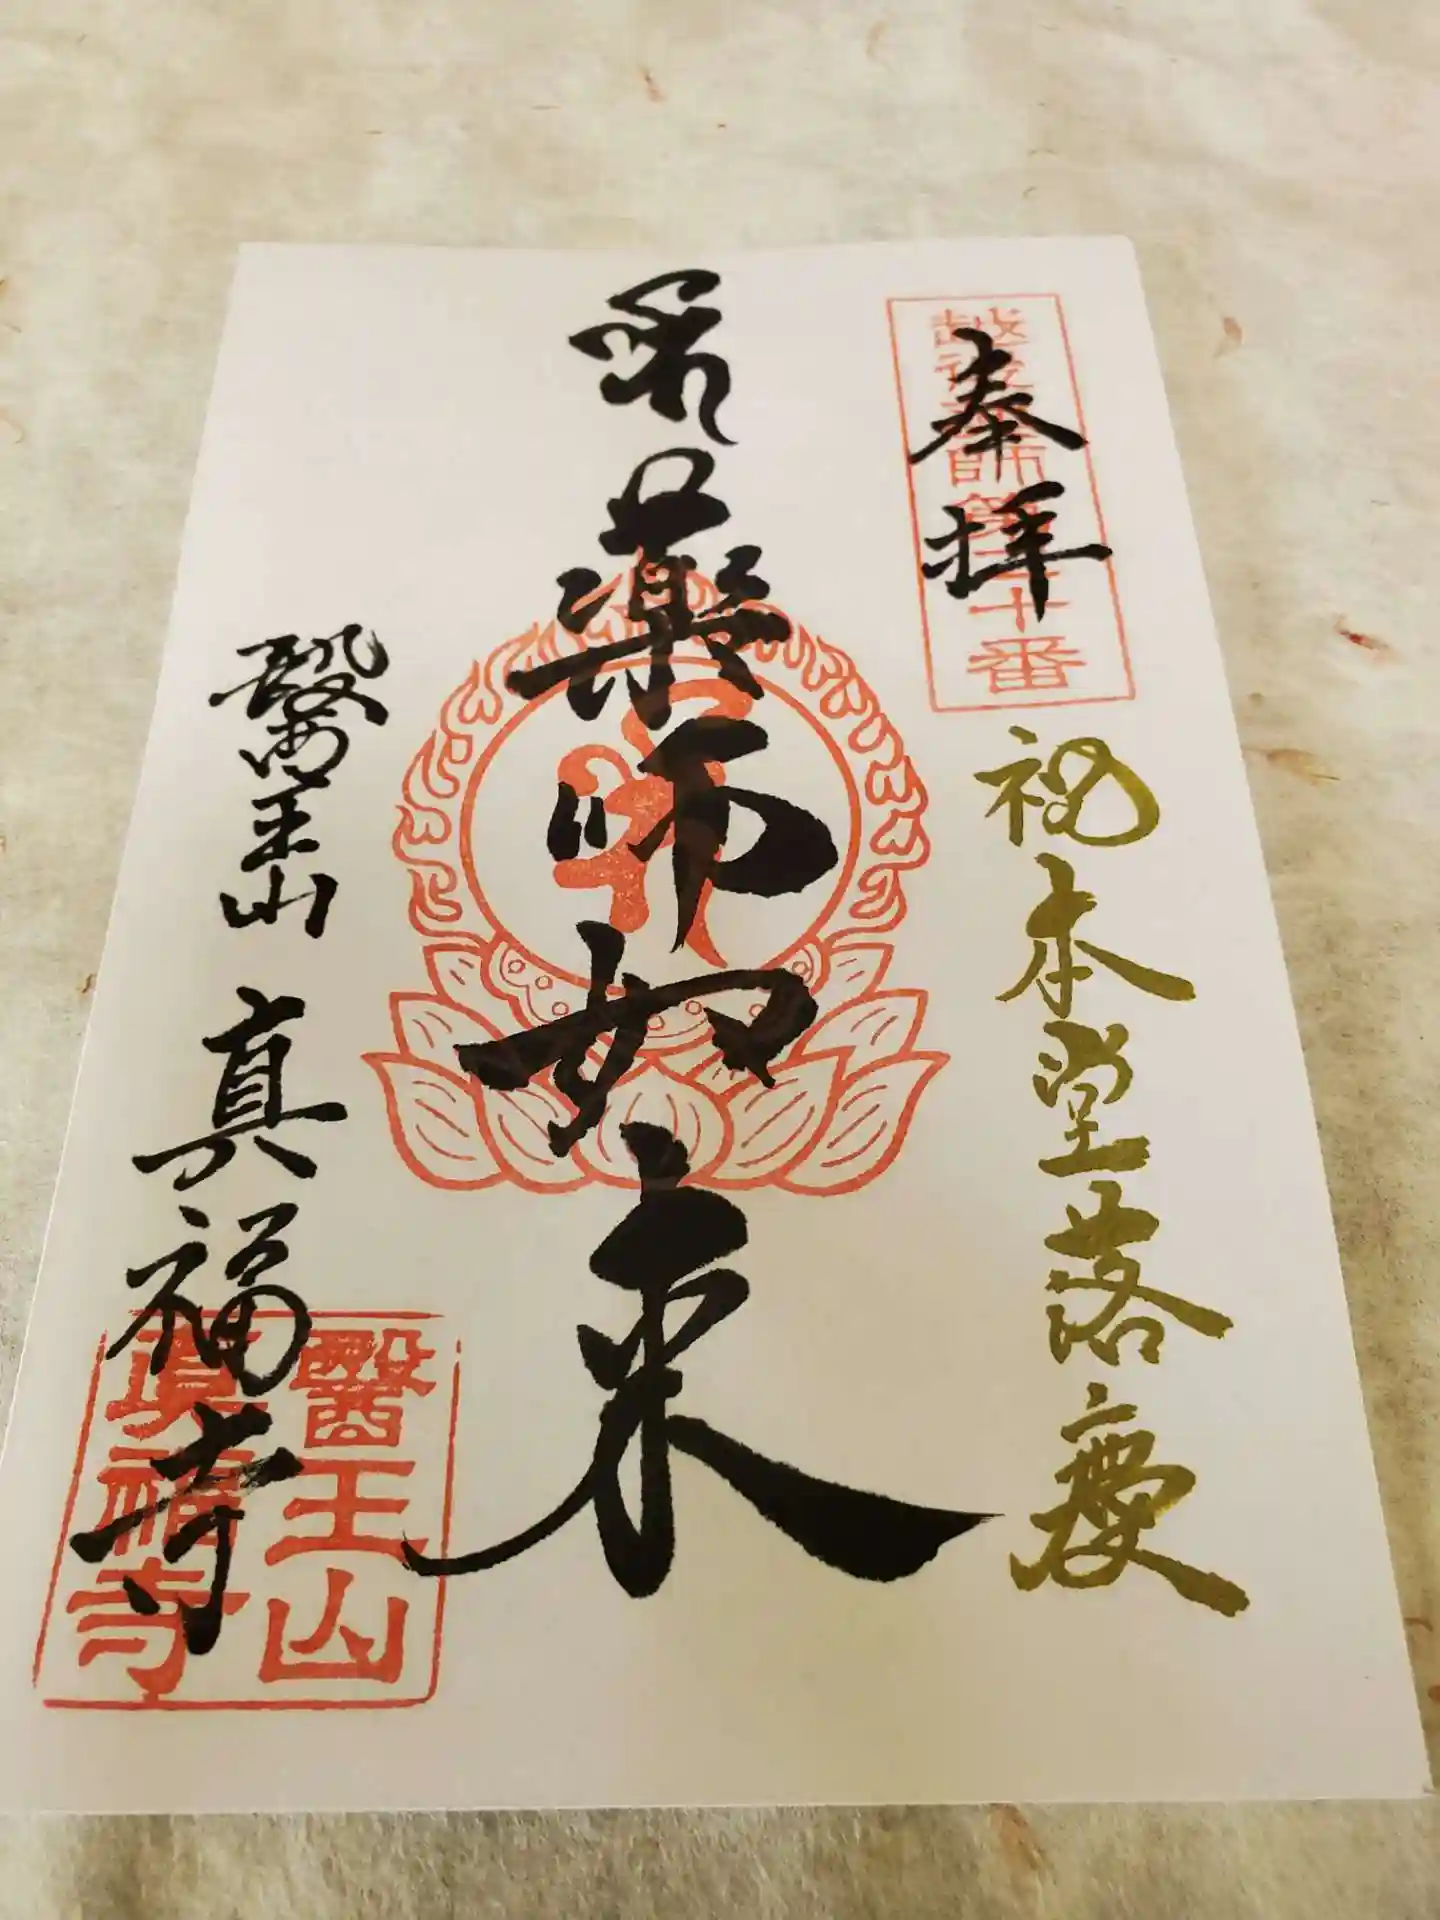 奉拝
越後薬師第二十番
祝本堂落慶
薬師如来
醫王山 真福寺
醫王山
真福寺